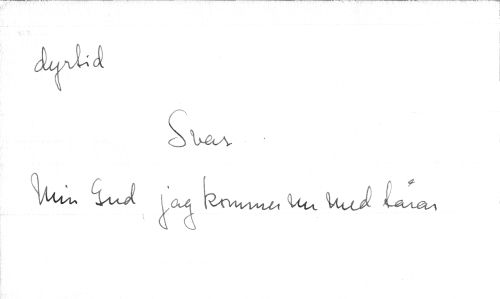 dyrtid
Svar
Min Gud jag kommer nu med tårar